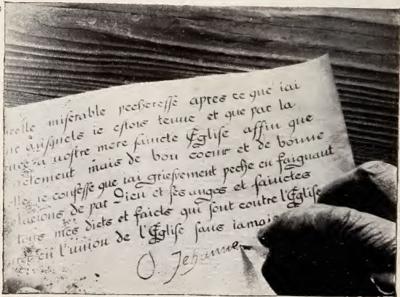 misérable pecheresse apres ce que iai
ausquels ie estois tenue et que par la
a nostre mere saincte Eglise affin que
mais de bon coeur et de bonne
ie confesse que iay griefvement peche en faignant
de par Dieu et ses anges et sainctes
mes dicts et faicts qui sont contre l'Eglise
en l'union de l'Eglise sans iamais
Jehanne